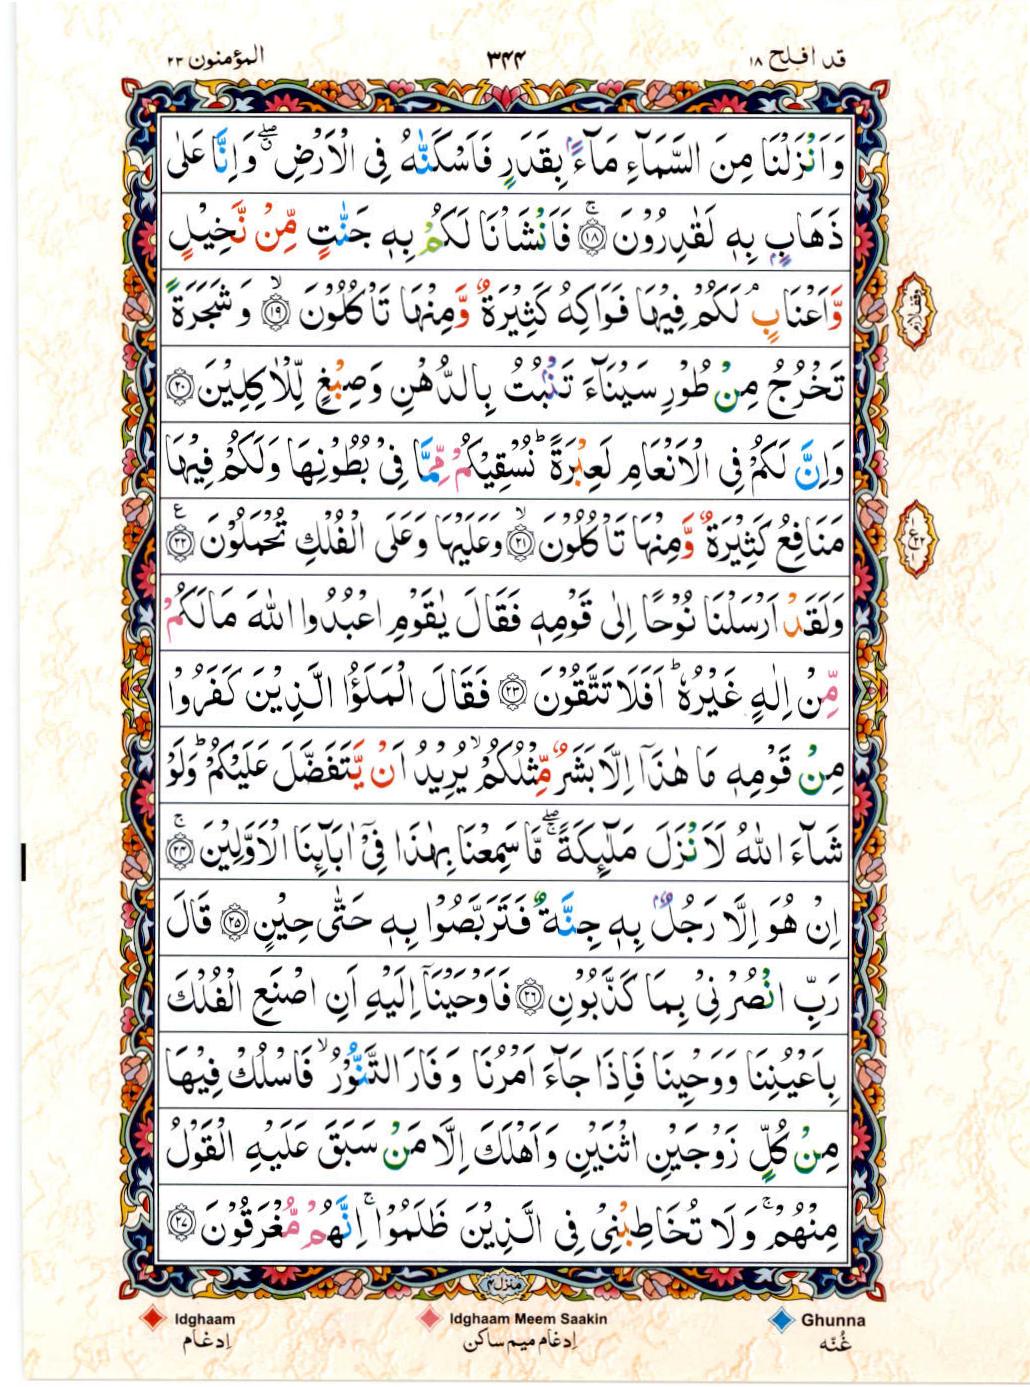 قد افلح ۱۸
۳۴۴
المؤمنون ۲۳
وَاَنْزَلْنَا مِنَ السَّمَآءِ مَآءًۢ بِقَدَرٍ فَاَسْكَنّٰهُ فِى الْاَرْضِ ۖۗ وَاِنَّا عَلٰى
ذَهَابٍۭ بِهٖ لَقٰدِرُوْنَ ۚ‏﴿۱۸﴾ فَاَنْشَاْنَا لَكُمْ بِهٖ جَنّٰتٍ مِّنْ نَّخِيْلٍ
وَّاَعْنَابٍ ۘ لَكُمْ فِيْهَا فَوَاكِهُ كَثِيْرَةٌ وَّمِنْهَا تَاْكُلُوْنَ ۙ‏﴿۱۹﴾ وَشَجَرَةً
تَخْرُجُ مِنْ طُوْرِ سَيْنَآءَ تَنْۢبُتُ بِالدُّهْنِ وَصِبْغٍ لِّلْاٰكِلِيْنَ ﴿۲۰﴾
وَاِنَّ لَكُمْ فِى الْاَنْعَامِ لَعِبْرَةً ؕ نُسْقِيْكُمْ مِّمَّا فِىْ بُطُوْنِهَا وَلَكُمْ فِيْهَا
مَنَافِعُ كَثِيْرَةٌ وَّمِنْهَا تَاْكُلُوْنَ ۙ‏﴿۲۱﴾ وَعَلَيْهَا وَعَلَى الْفُلْكِ تُحْمَلُوْنَ ﴿۲۲﴾ ع
وَلَقَدْ اَرْسَلْنَا نُوْحًا اِلٰى قَوْمِهٖ فَقَالَ يٰقَوْمِ اعْبُدُوا اللّٰهَ مَا لَكُمْ
مِّنْ اِلٰهٍ غَيْرُهٗ ؕ اَفَلَا تَتَّقُوْنَ ﴿۲۳﴾ فَقَالَ الْمَلَؤُا الَّذِيْنَ كَفَرُوْا
مِنْ قَوْمِهٖ مَا هٰذَاۤ اِلَّا بَشَرٌ مِّثْلُكُمْ ۙ يُرِيْدُ اَنْ يَّتَفَضَّلَ عَلَيْكُمْ ؕ وَلَوْ
شَآءَ اللّٰهُ لَاَنْزَلَ مَلٰٓئِكَةً ۖۚ مَّا سَمِعْنَا بِهٰذَا فِىْۤ اٰبَآئِنَا الْاَوَّلِيْنَ ۚ‏﴿۲۴﴾
اِنْ هُوَ اِلَّا رَجُلٌۢ بِهٖ جِنَّةٌ فَتَرَبَّصُوْا بِهٖ حَتّٰى حِيْنٍ ﴿۲۵﴾ قَالَ
رَبِّ انْصُرْنِىْ بِمَا كَذَّبُوْنِ ﴿۲۶﴾ فَاَوْحَيْنَاۤ اِلَيْهِ اَنِ اصْنَعِ الْفُلْكَ
بِاَعْيُنِنَا وَوَحْيِنَا فَاِذَا جَآءَ اَمْرُنَا وَفَارَ التَّنُّوْرُ ۙ فَاسْلُكْ فِيْهَا
مِنْ كُلٍّ زَوْجَيْنِ اثْنَيْنِ وَاَهْلَكَ اِلَّا مَنْ سَبَقَ عَلَيْهِ الْقَوْلُ
مِنْهُمْ ۚ وَلَا تُخَاطِبْنِىْ فِى الَّذِيْنَ ظَلَمُوْا ۚ اِنَّهُمْ مُّغْرَقُوْنَ ﴿۲۷﴾
منزل ۴
Ghunna
غُنّه
Idghaam Meem Saakin
اِدغام میم ساکن
Idghaam
اِدغام